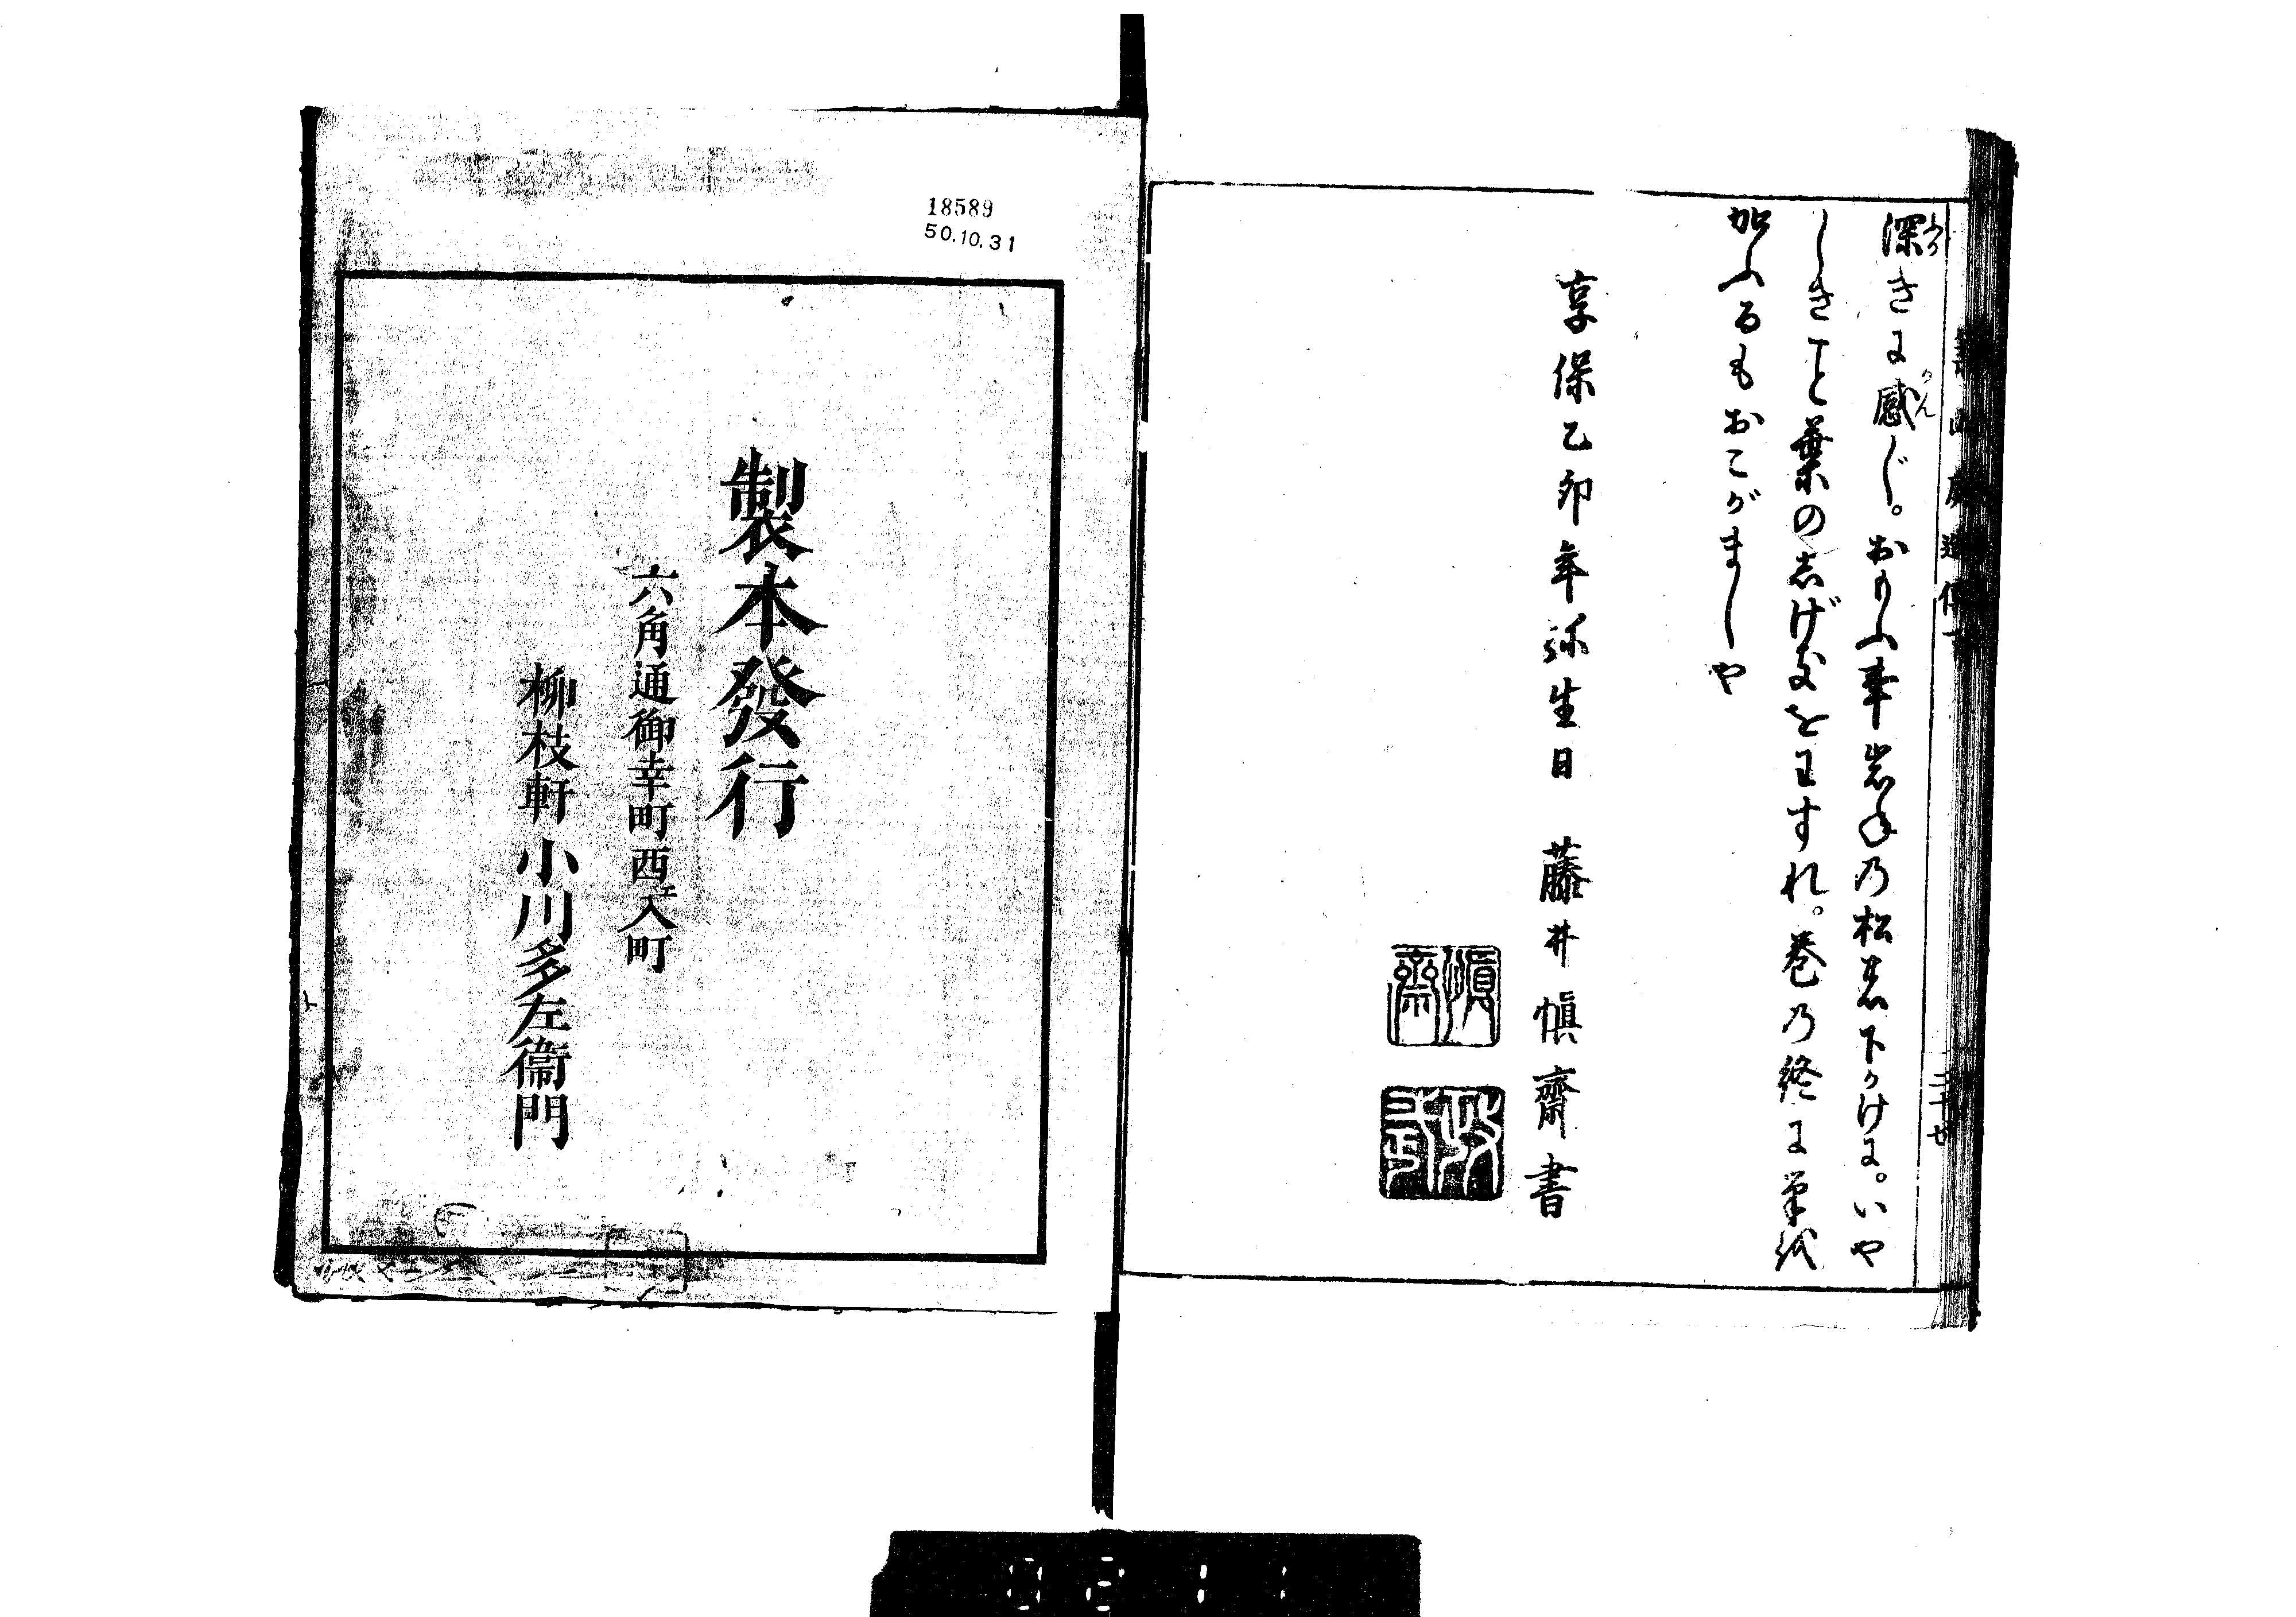 深きに感じ。おもふ事岩手乃松の下かけに。いや
しきこと葉の志げきをわすれ。巻乃終に筆越
加ふるもおこがましや
享保乙卯年弥生日 藤井愼齋書
愼齋
18589
50.10.31
製本發行
六角通御幸町西エ入町
柳枝軒 小川多左衞門